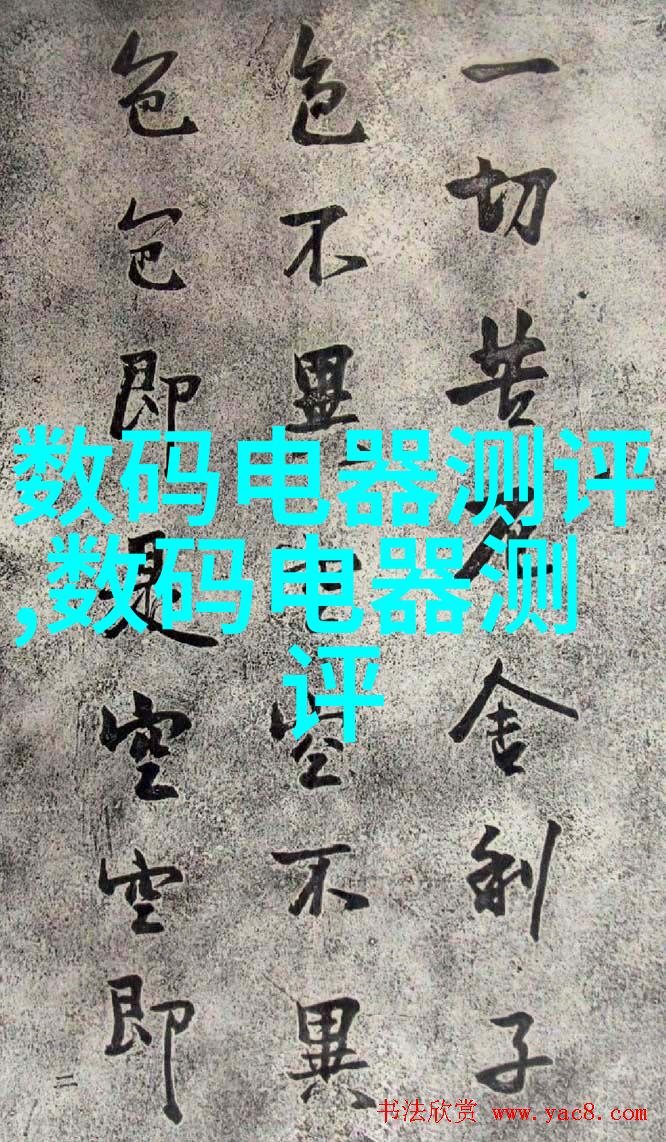 一切苦厄舍利子
色不異空不異
色色即是空空即
二
数码电器测评
,数码电器测
评
书法欣赏 www.yac8.com